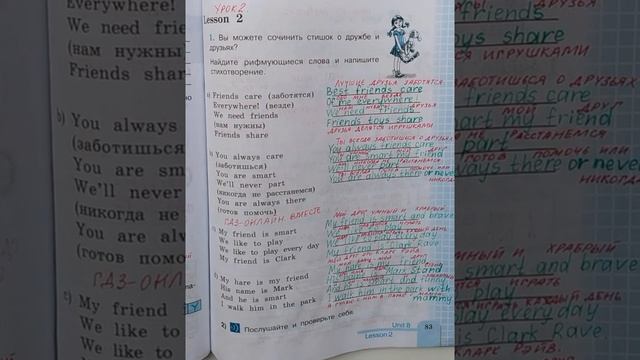 УРОК 2
Lesson 2
1. Вы можете сочинить стишок о дружбе и друзьях?
Найдите рифмующиеся слова и напишите стихотворение.
a) Friends care (заботятся)
Everywhere! (везде)
We need friends
(нам нужны)
Friends share
ЛУЧШИЕ ДРУЗЬЯ ЗАБОТЯТСЯ
Best friends care
Of me everywhere!
We need friends
Friends toys share
ДРУЗЬЯ ДЕЛЯТСЯ ИГРУШКАМИ
b) You always care
(заботишься)
You are smart
We'll never part
(никогда не расстанемся)
You are always there
(готов помочь)
ТЫ ВСЕГДА ЗАБОТИШЬСЯ О ДРУЗЬЯХ
You always friends care
You are smart my friend
part
You are always there or never
НИКОГДА
ГДЗ-ОНЛАЙН. ВМЕСТЕ
c) My friend is smart
We like to play
We like to play every day
My friend is Clark
МОЙ ДРУГ УМНЫЙ И ХРАБРЫЙ
My friend is smart and brave
We like to play
every day
My friend is Clark Rave
d) My hare is my friend
His name is Mark
And he is smart
I walk him in the park
My hare is my friend
Mark Stand
smart and funny
I walk him in the park with
mammy
2) Послушайте и проверьте себя.
Unit 8
Lesson 2
83
Everywhere!
We need friends
(нам нужны)
Friends shar
b) You always
(заботишься
You are sm
We'll never
(никогда не
You are alv
(готов помоч
ГДЗ-ОНЛ
c) My friend
We like to
We like to
ДРУЗЬЯ
friends
toys share
ИГРУШКАМИ
ЗАБОТИШЬСЯ О ДРУЗЬЯХ
friends care
МОЙ ДРУГ
art my friend
НЕ РАССТАНЕМСЯ
part
ГОТОВ ПОМОЧЬ ИЛИ
ways there or never
НИКОГДА
УМНЫЙ И ХРАБРЫЙ
smart and brave
ИГРАТЬ
play
ИГРАТЬ КАЖДЫЙ ДЕНЬ
play every day
is Clark Rave
КЛАРК РЭЙВ.